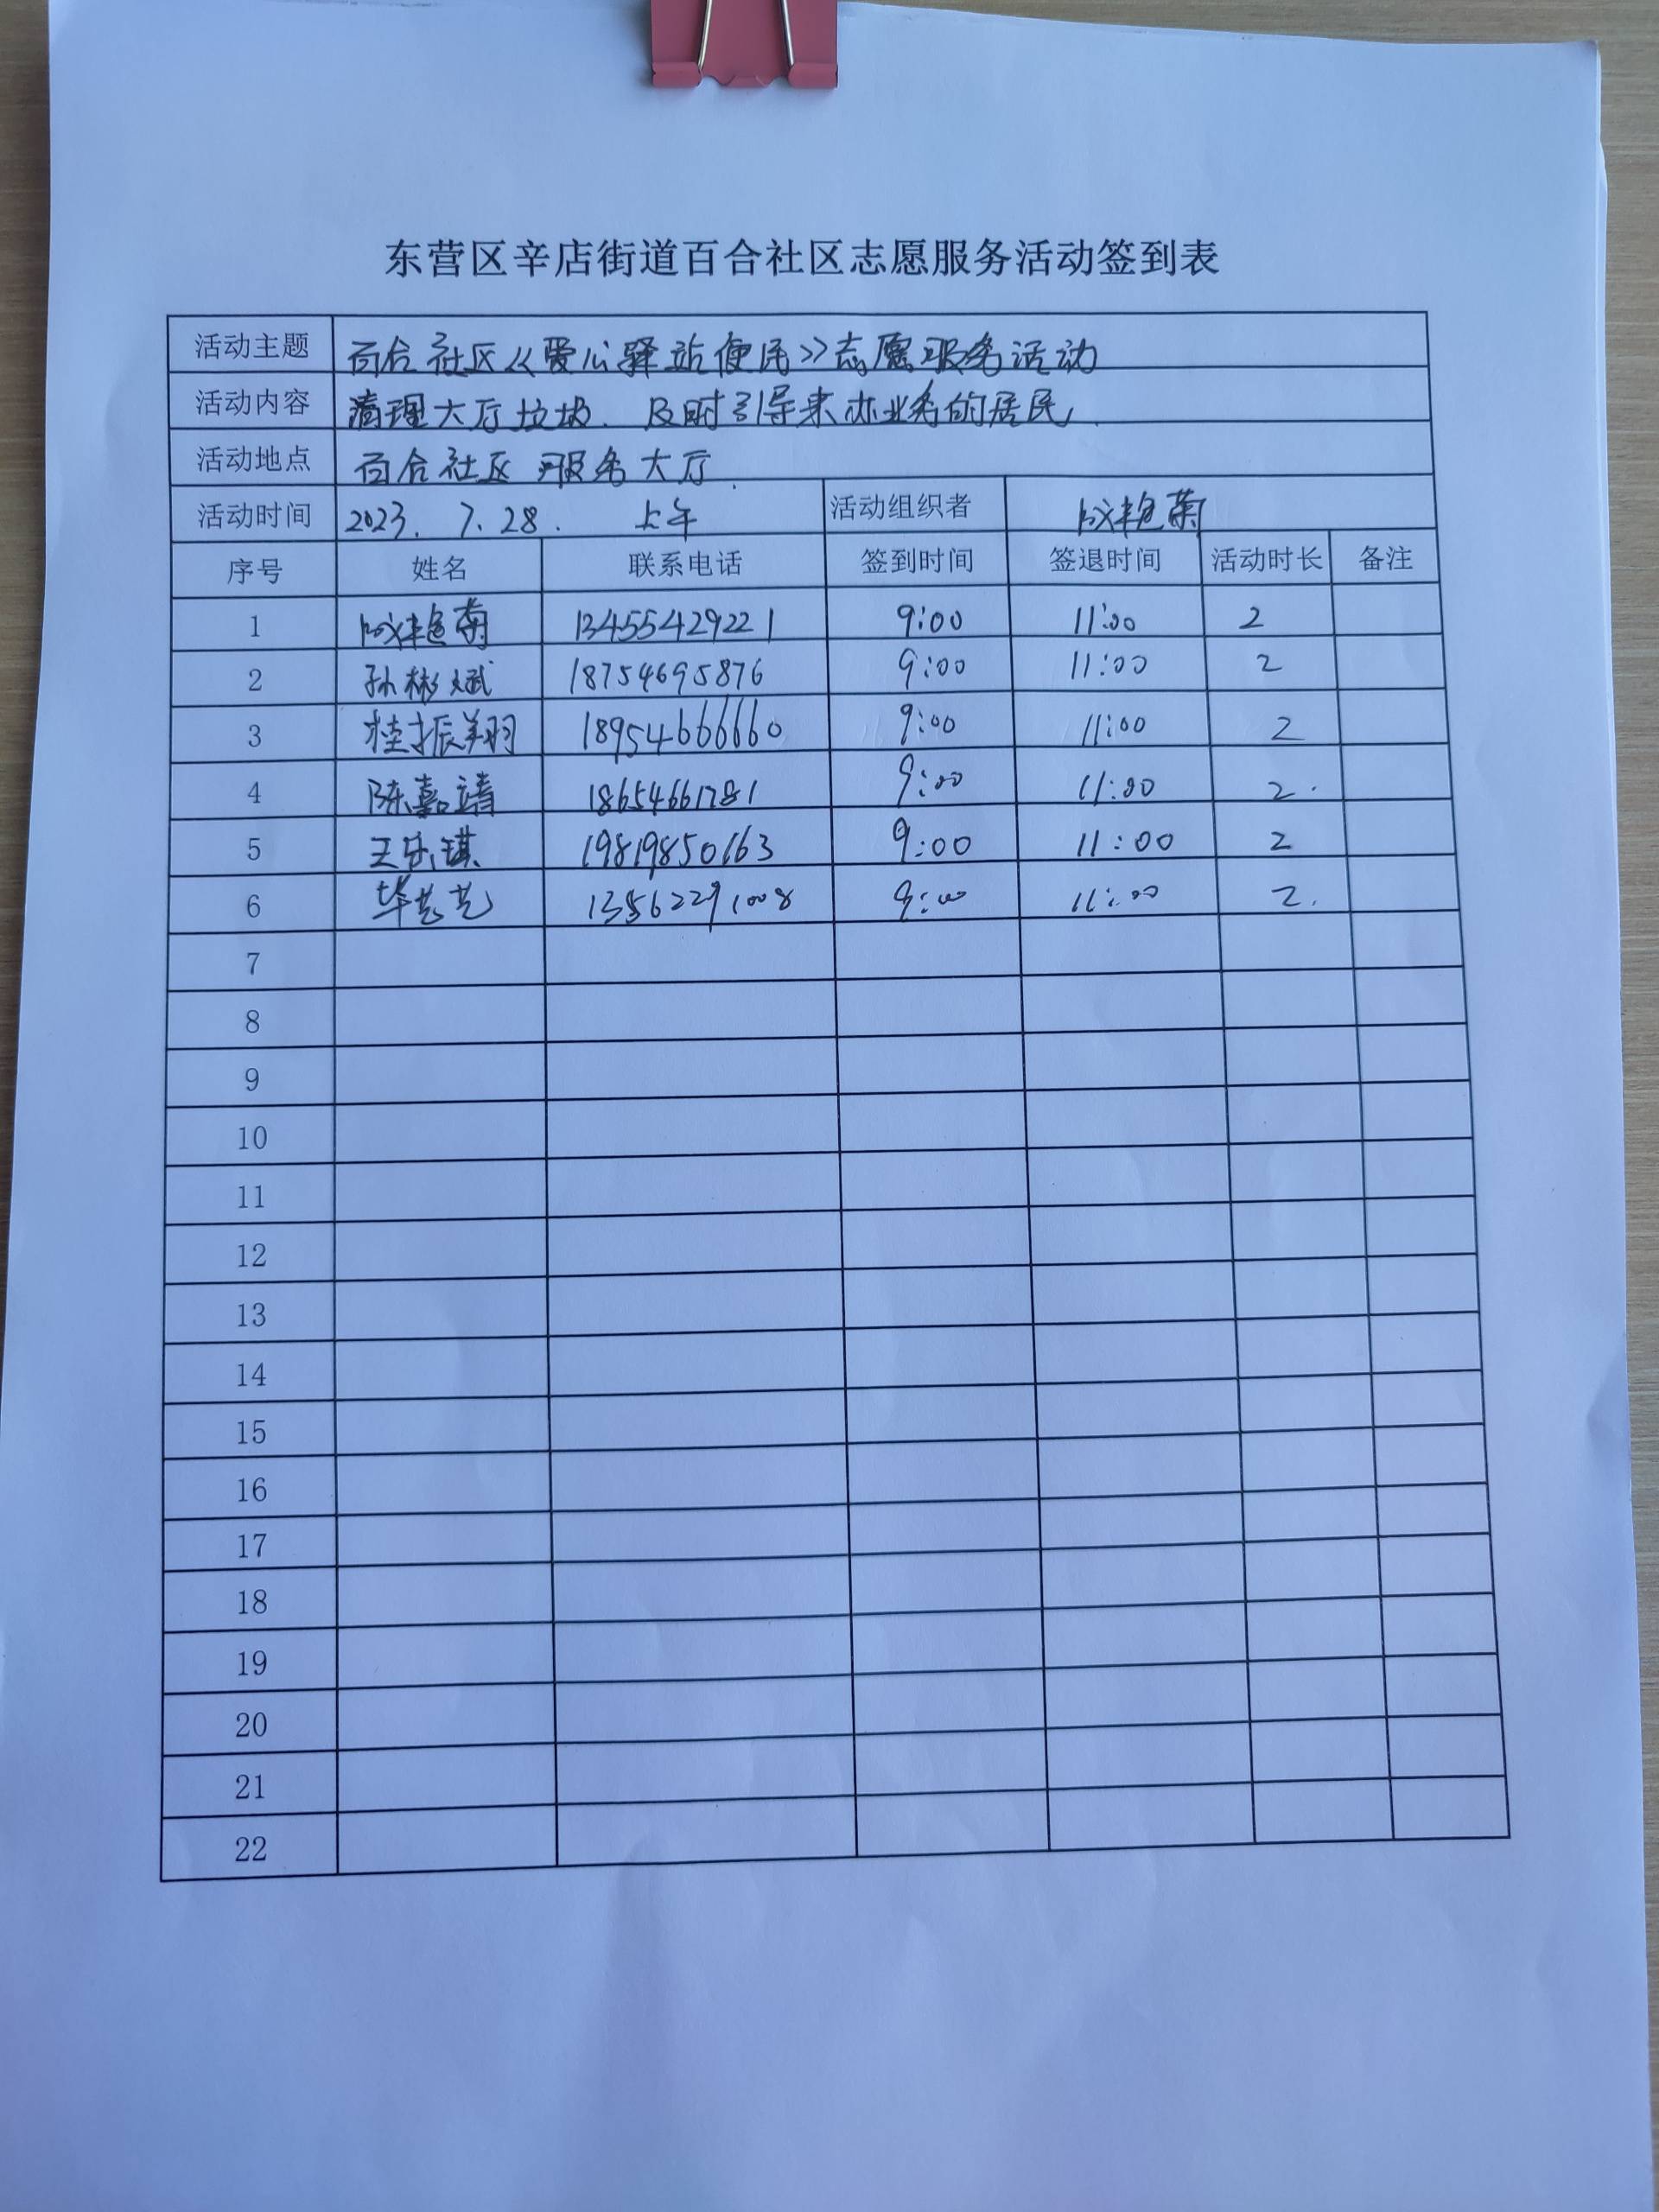 东营区辛店街道百合社区志愿服务活动签到表
活动主题 百合社区《爱心驿站便民》志愿服务活动
活动内容 清理大厅垃圾、及时引导来办业务的居民
活动地点 百合社区 服务大厅
活动时间 2023. 7. 28. 上午 活动组织者 艳菊
序号 姓名 联系电话 签到时间 签退时间 活动时长 备注
1 艳菊 13455429221 9:00 11:00 2
2 孙彬斌 18754695876 9:00 11:00 2
3 桂振翔 18954666660 9:00 11:00 2
4 陈嘉靖 18654661781 9:00 11:00 2.
5 王乐琪 19819850163 9:00 11:00 2
6 毕艺艺 13562291008 9:00 11:00 2.
7
8
9
10
11
12
13
14
15
16
17
18
19
20
21
22